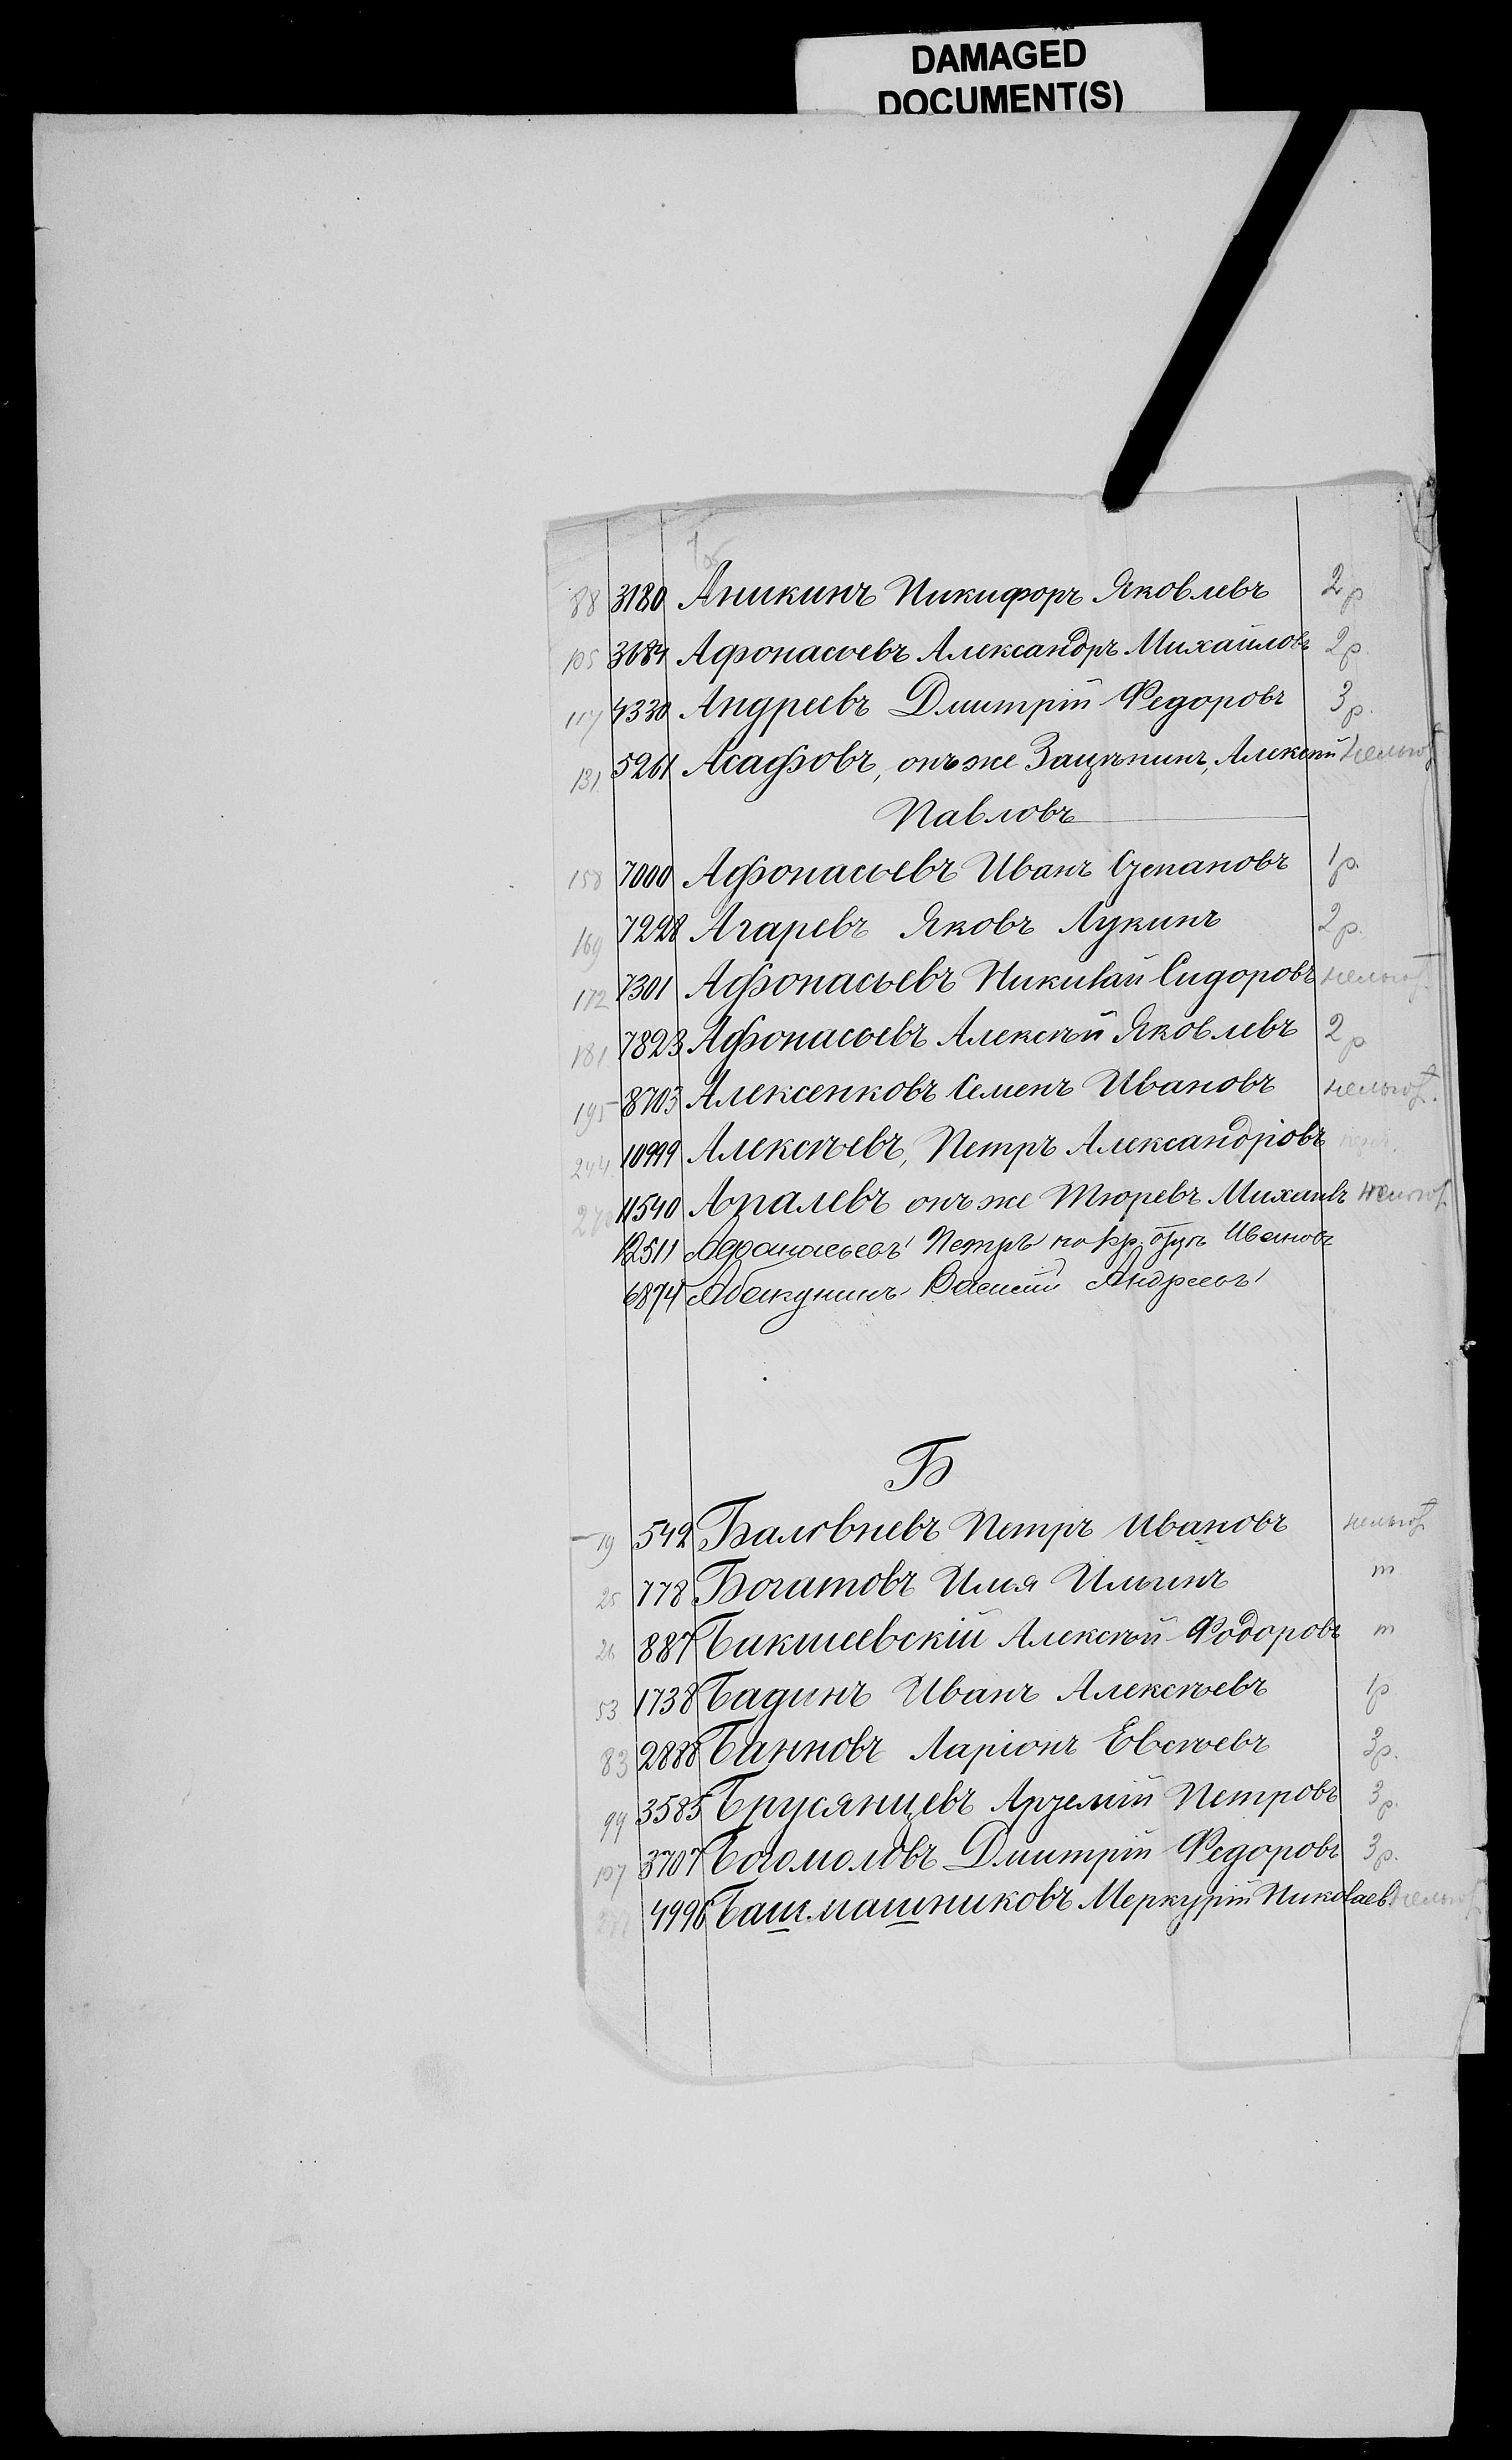 DAMAGED
DOCUMENT(S)
88 3180 Аникинъ Никифоръ Яковлевъ 2р
105 3684 Афонасьевъ Александръ Михайловъ 2р.
117 4330 Андреевъ Дмитрій Федоровъ 3р.
131 5261 Асафовъ, онъ же Зацѣпинъ, Алексѣй нельгот
Павловъ
158 7000 Афонасьевъ Иванъ Степановъ 1р.
169 7228 Агаревъ Яковъ Лукинъ 2р.
172 7301 Афонасьевъ Николай Сидоровъ нельгот.
181 7823 Афонасьевъ Алексѣй Яковлевъ 2р
195 8703 Алексенковъ Семенъ Ивановъ нельгот.
244 10999 Алексѣевъ, Петръ Александровъ
270 11540 Апалевъ онъ же Тюревъ Михаилъ нельгот.
12511 Афанасьевъ Петръ по кр. отцѣ Ивановъ
6874 Абакунинъ Василій Андреевъ
Б
19 542 Баловневъ Петръ Ивановъ нельгот
25 778 Богатовъ Илья Ильинъ т
26 887 Бакшеевскій Алексѣй Федоровъ т
53 1738 Бадинъ Иванъ Алексѣевъ 1р
83 2888 Банновъ Ларіонъ Евсѣевъ 3р.
99 3585 Брусянцевъ Артемій Петровъ 3р.
107 3707 Богомоловъ Дмитрій Федоровъ 3р.
4996 Башмашниковъ Меркурій Николаевъ нельгот